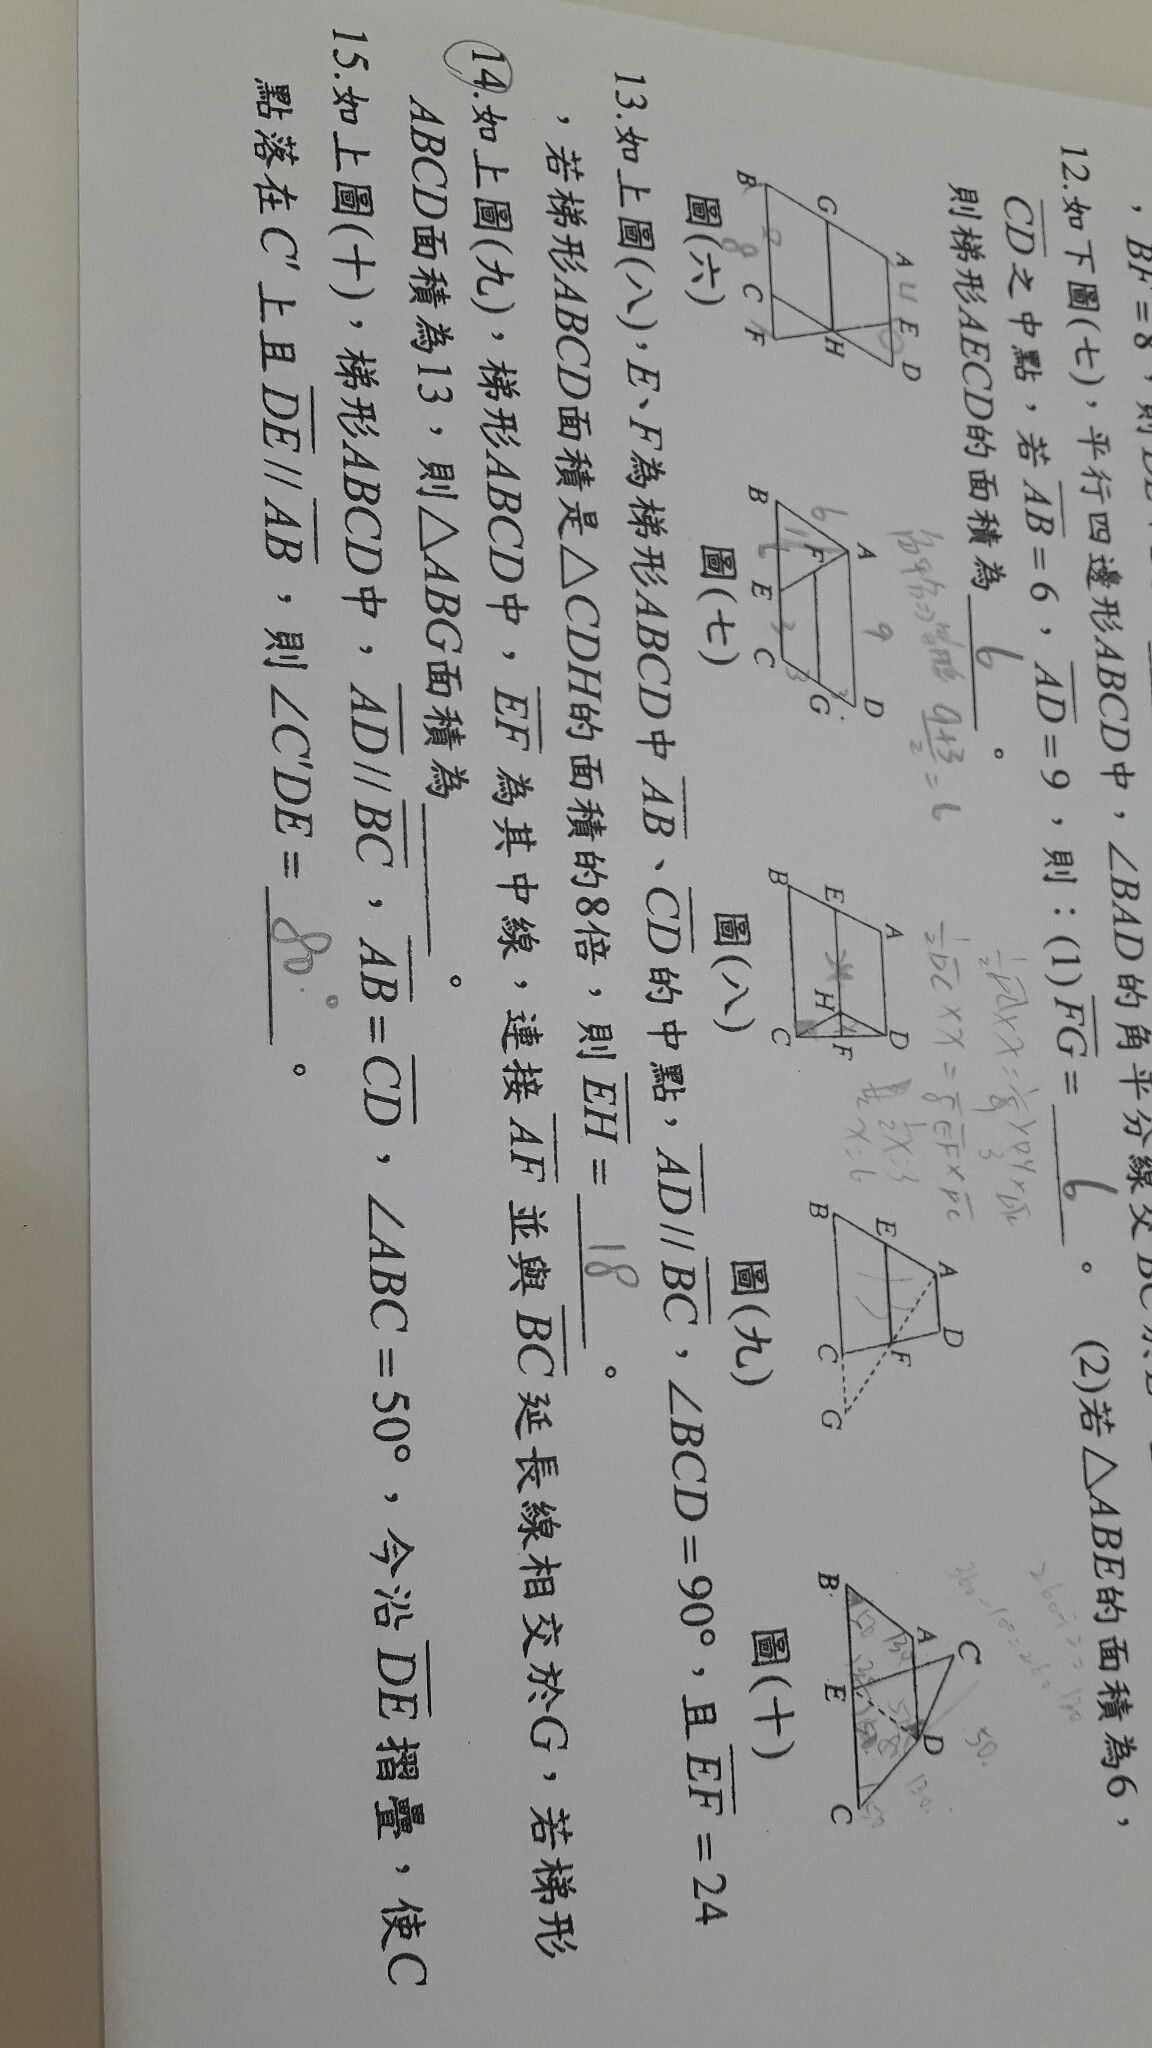 ，BF=8，則
12.如下圖(七)，平行四邊形ABCD中，∠BAD的角平分線交BC於
CD之中點，若AB=6，AD=9，則：(1)FG= 6 。 (2)若△ABE的面積為6，
則梯形AECD的面積為 6 。
A 4 E D
G H
B 8 C F
圖(六)
A 9 D
6 F G
B E 3 C
9+3/2=6
圖(七)
A D
E H F
B C
½x=3
x=6
圖(八)
A D
E F
B C G
圖(九)
C' 50
A D
B E C
圖(十)
13.如上圖(八)，E、F為梯形ABCD中AB、CD的中點，AD//BC，∠BCD=90°，且EF=24
，若梯形ABCD面積是△CDH的面積的8倍，則EH= 18 。
14.如上圖(九)，梯形ABCD中，EF為其中線，連接AF並與BC延長線相交於G，若梯形
ABCD面積為13，則△ABG面積為 。
15.如上圖(十)，梯形ABCD中，AD//BC，AB=CD，∠ABC=50°，今沿DE摺疊，使C
點落在C'上且DE//AB，則∠C'DE= 80° 。